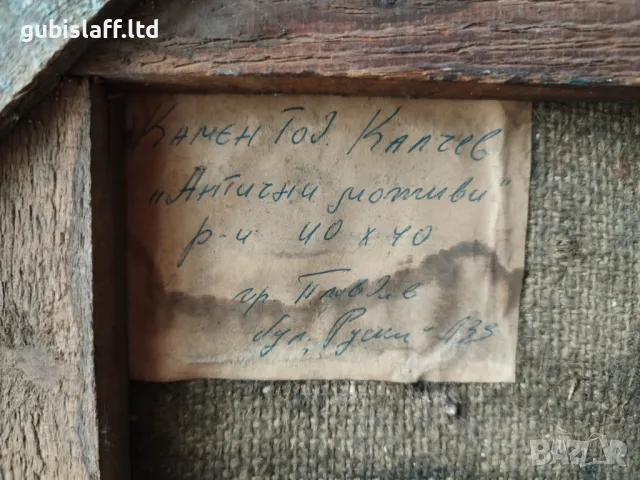 gubislaff.ltd
Камен Тод. Калчев
"Антични мотиви"
р-и 40 x 40
гр. Пловдив
бул. Руски - 139
BAZAR